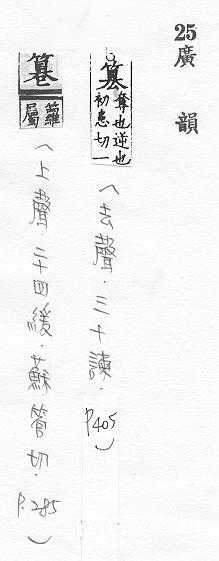 25
廣韻
篡 奪也逆也
初患切一
（去聲．三十諫．
P.405）
籑 籮
屬
（上聲．二十四緩．蘇管切．
P.285）